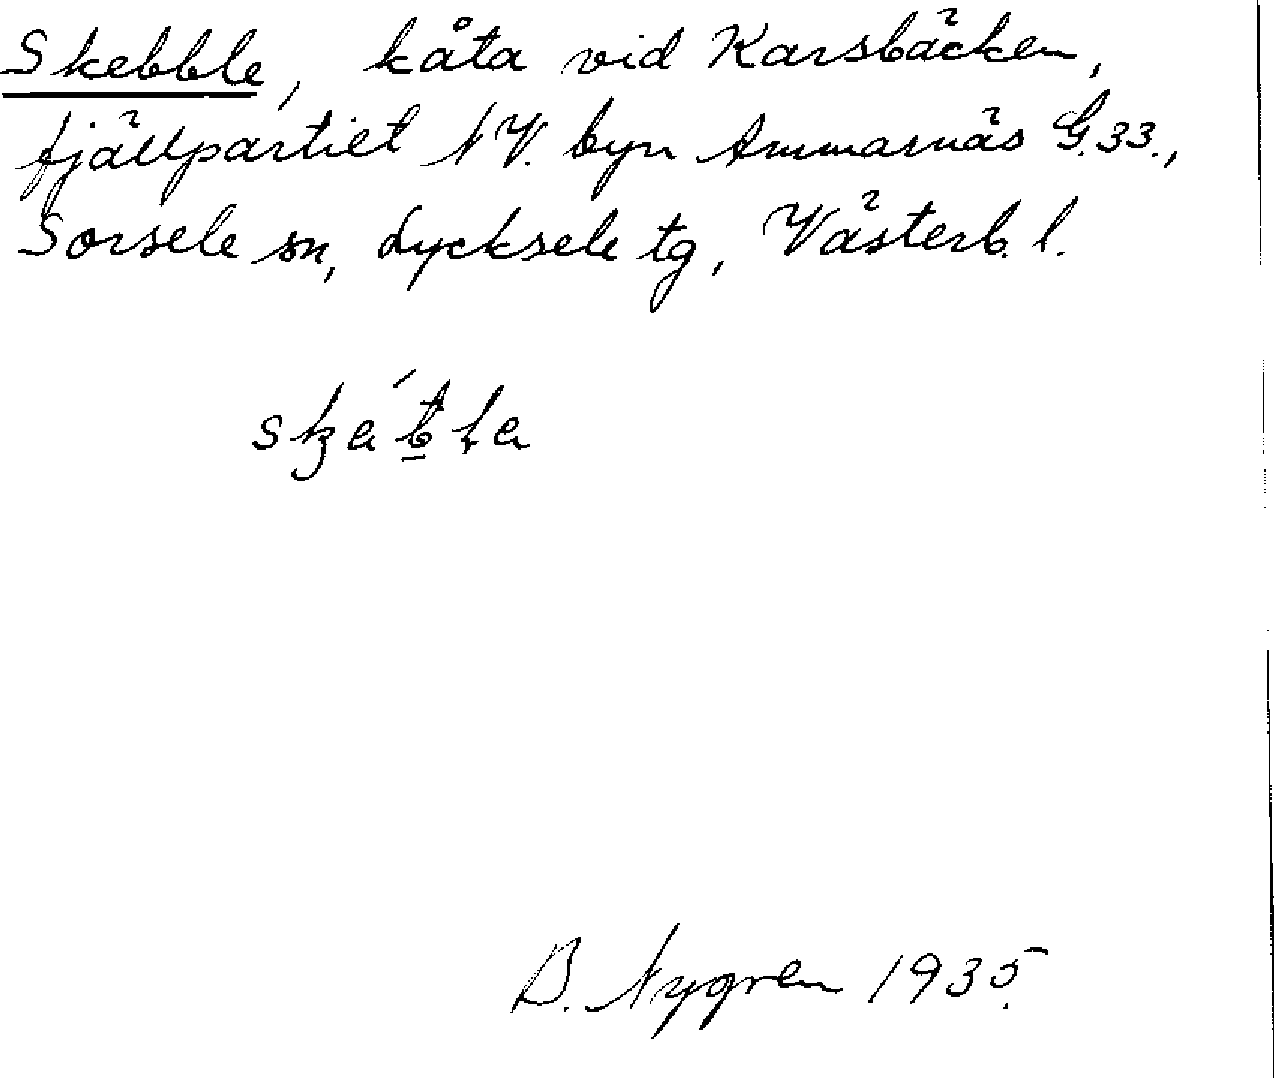 Skebble, kåta vid Karsbäcken,
fjällpartiet NV. byn Ammarnäs G.33.,
Sorsele sn, Lycksele tg, Västerb. l.
B. Nygren 1935.